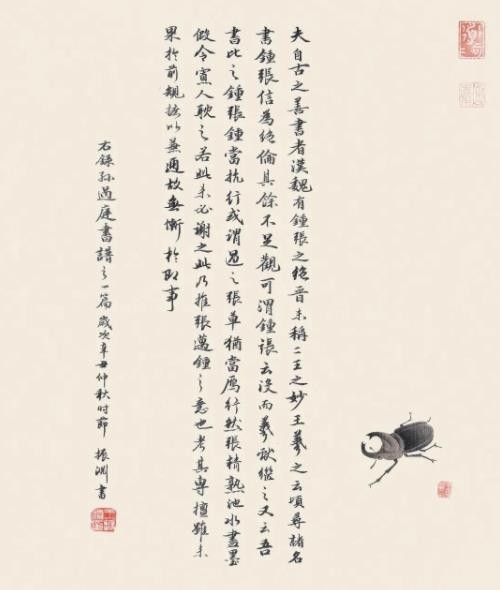 夫自古之善書者漢魏有鍾張之絕晉末稱二王之妙王羲之云頃尋諸名
書鍾張信為絕倫其餘不足觀可謂鍾張云沒而羲獻繼之又云吾
書比之鍾張鍾當抗行或謂過之張草猶當鴈行然張精熟池水盡墨
假令寡人耽之若此未必謝之此乃推張邁鍾之意也考其專擅雖未
果於前規摭以兼通故無慚於即事
右錄孫過庭書譜之一篇歲次辛丑仲秋时節 振淵書